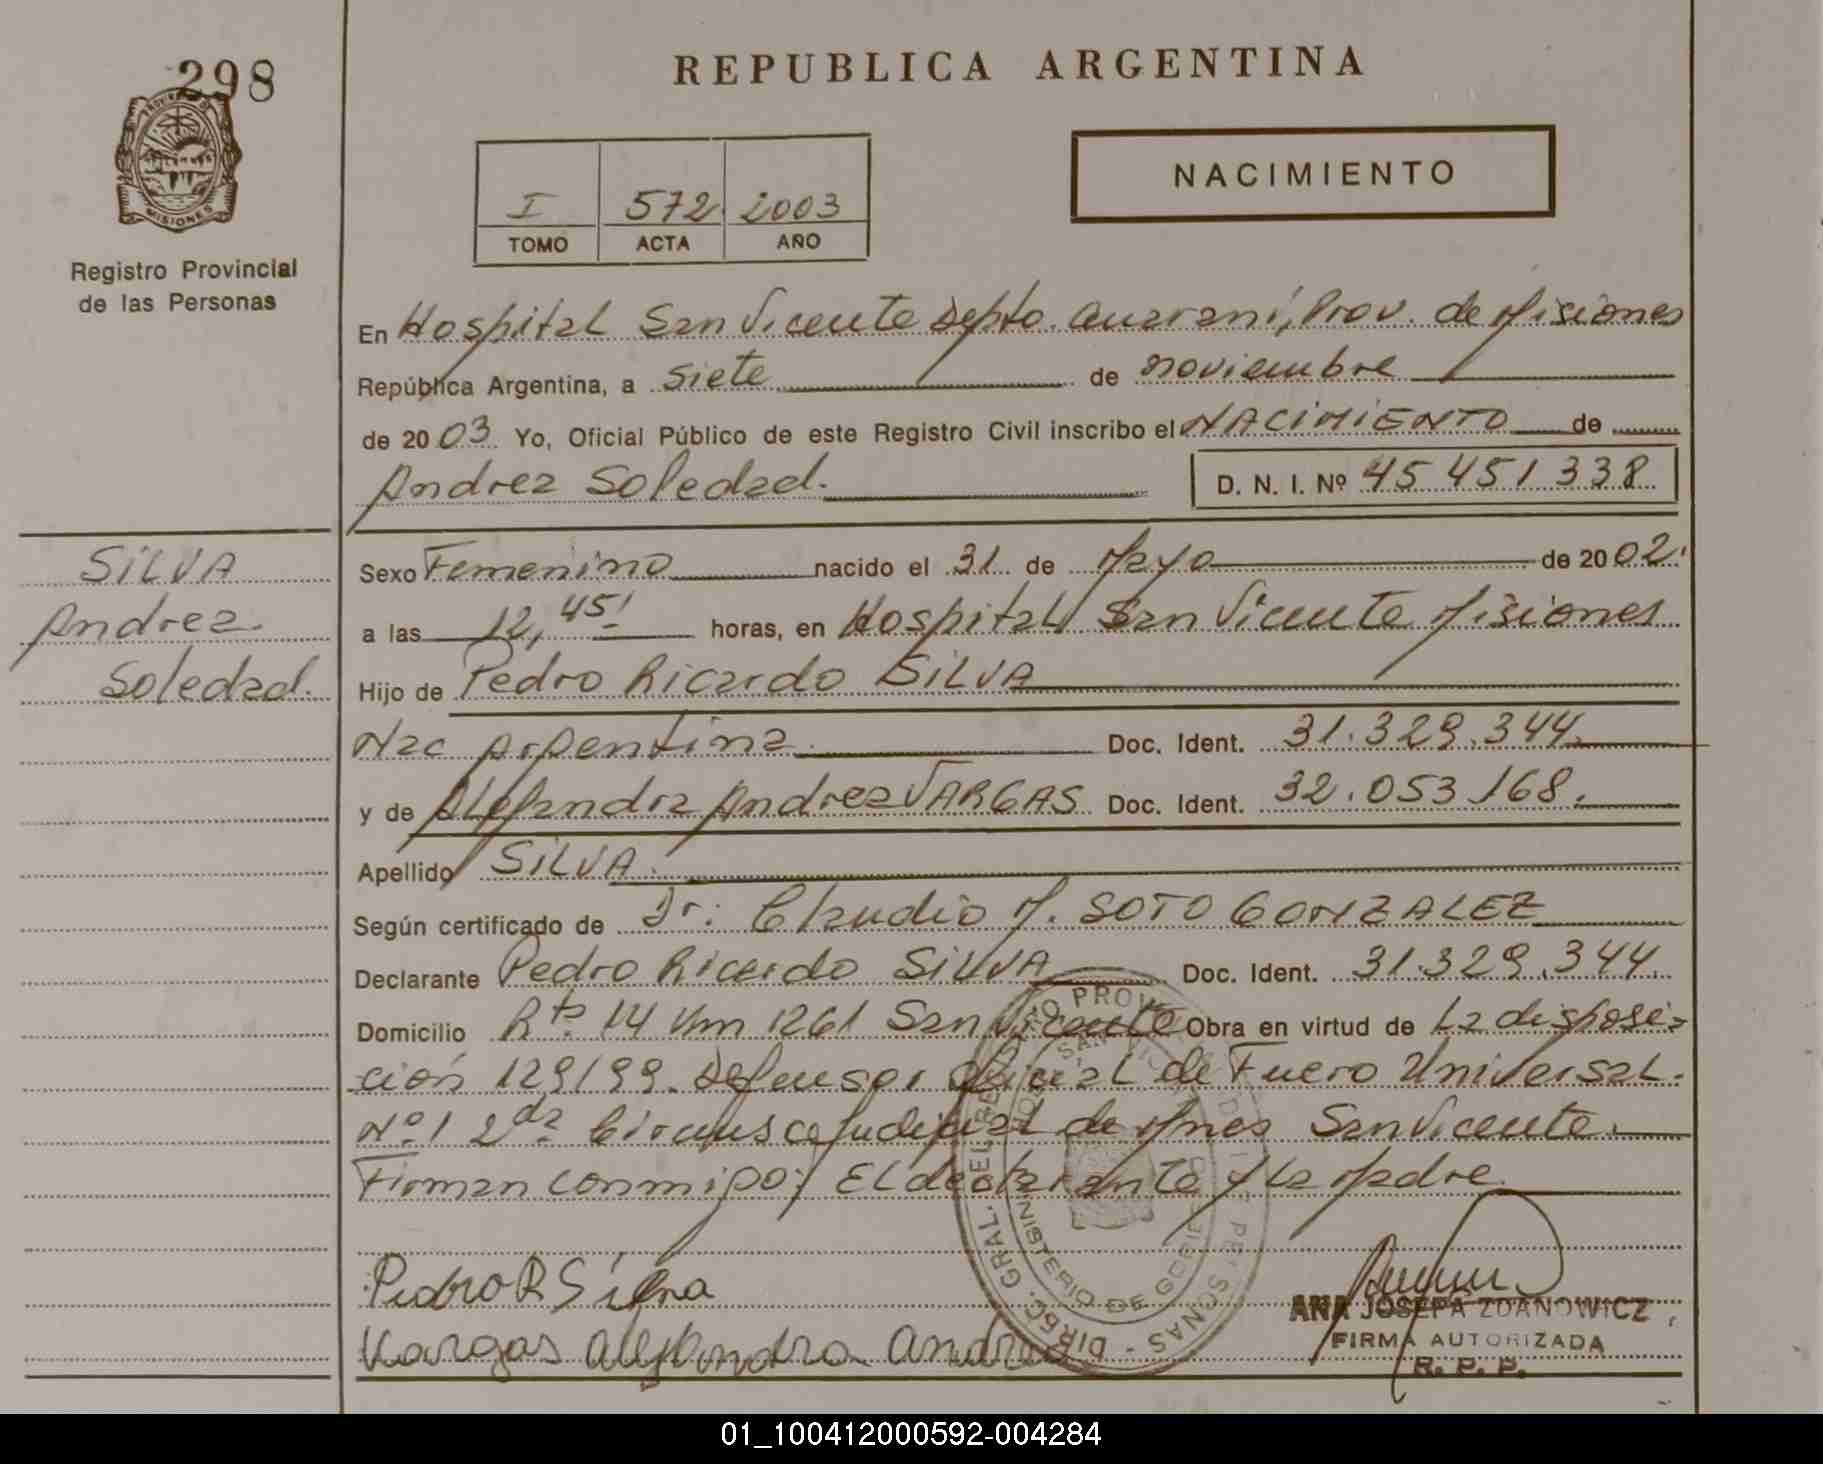 298
REPUBLICA ARGENTINA
PROVINCIA DE
MISIONES
Registro Provincial
de las Personas
NACIMIENTO
I 572 2003
TOMO ACTA AÑO
En Hospital San Vicente Depto. Guaraní, Prov. de Misiones
República Argentina, a Siete de noviembre
de 2003 Yo, Oficial Público de este Registro Civil inscribo el NACIMIENTO de
Andrea Soledad. D. N. I. Nº 45 451 338
SILVA
Andrea
Soledad.
Sexo Femenino nacido el 31 de Mayo de 2002.
a las 12,45' horas, en Hospital San Vicente Misiones
Hijo de Pedro Ricardo SILVA
Nac Argentina. Doc. Ident. 31.329.344.
y de Alejandra Andrea VARGAS Doc. Ident. 32.053.168.
Apellido SILVA.
Según certificado de Dr: Claudio M. SOTO GONZALEZ
Declarante Pedro Ricardo SILVA Doc. Ident. 31.329.344.
Domicilio Rta. 14 Km 1261 San Vicente Obra en virtud de La disposi-
ción 129/99. Defensor Oficial de Fuero Universal.
Nº1 2da. Circunsc Judicial de Mnes San Vicente.
Firman conmigo; El declarante y La Madre.
Pedro R Silva
Vargas Alejandra Andrea
ANA JOSEFA ZDANOWICZ
FIRMA AUTORIZADA
R. P. P.
DIREC. GRAL. DEL REGISTRO PROV. DE LAS PERSONAS
MINISTERIO DE GOBIERNO
01_100412000592-004284